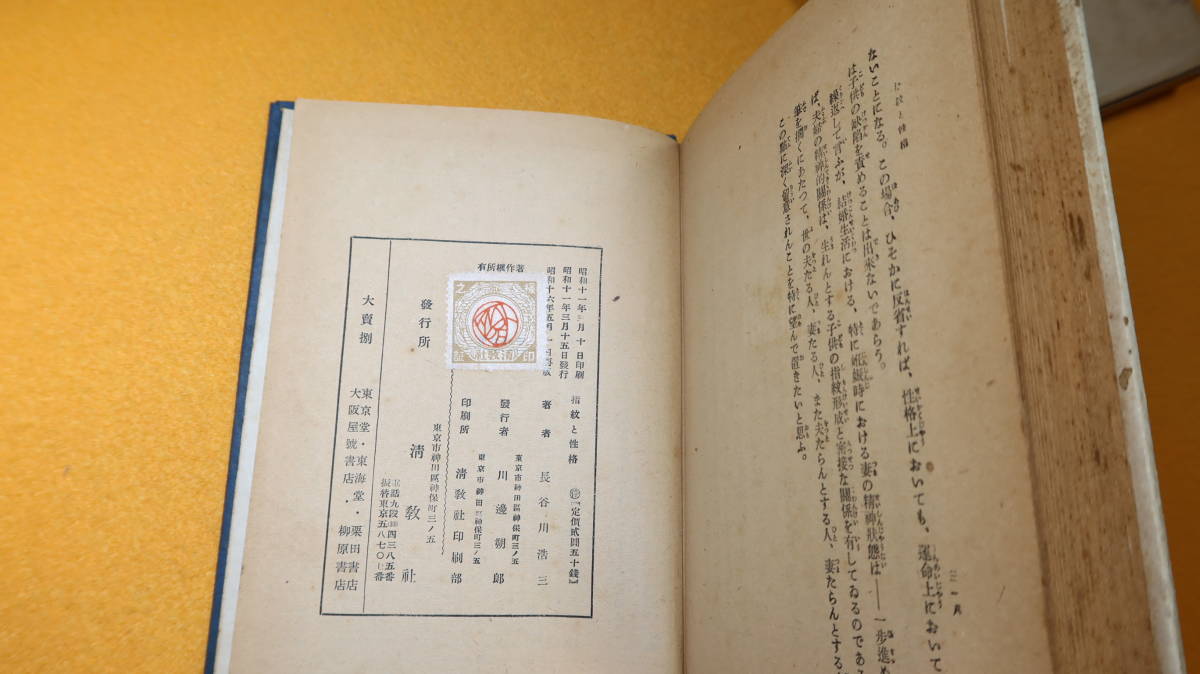 指紋と性格
ないことになる。この場合、ひそかに反省すれば、性格上においても、運命上において
は子供の缺陷を責めることは出來ないであらう。
繰返して言ふが、結婚生活における、特に妊娠時における妻の精神狀態は――一步進め
ば、夫婦の精神的關係は、生れんとする子供の指紋形成と密接な關係を有してゐるのであ
筆を擱くにあたつて、世の夫たる人、妻たる人、また夫たらんとする人、妻たらんとする
この點に深く留意されんことを特に望んで置きたいと思ふ。
著作權所有
昭和十一年三月十日印刷
昭和十一年三月十五日發行
昭和十六年五月
指紋と性格
定價貳圓五十錢
著者 長谷川浩三
東京市神田區神保町三ノ五
發行者 川邊朔郎
東京市神田區神保町三ノ五
印刷所 清敎社印刷部
東京市神田區神保町三ノ五
發行所 清敎社
電話九段四三八五番
振替東京五八七〇番
大賣捌
東京堂・東海堂・栗田書店
大阪屋號書店・柳原書店
清敎社
印
之